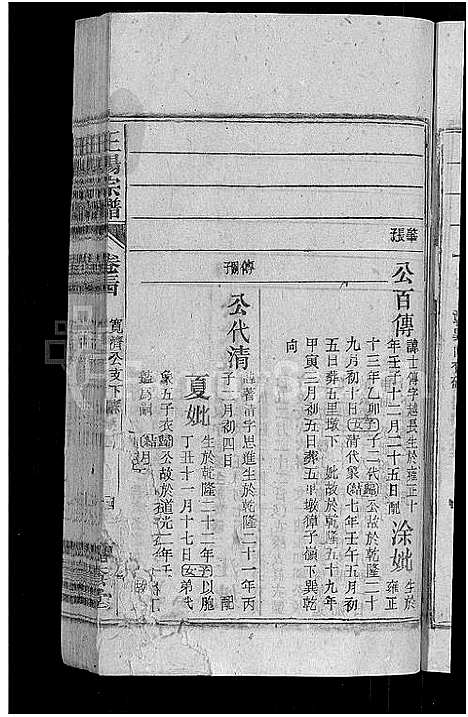 華張
公百傳
諱士傳字越長生於雍正十
年壬子十二月二十五日配
涂妣
生於
雍正
十三年乙卯子二代歸公故於乾隆二十
九月初十日女清代象結七年壬午五月初
五日葬五里墩下妣故於乾隆五十九年
甲寅二月初五日葬五平墩獐子嶺下巽乾
向
傳子
公代清
諱著清字思進生於乾隆二十一年丙
子二月初四日配
夏妣
生於乾隆二十二年子以胞
丁丑十一月十七日女弟代
象五子衣歸公故於道光二年壬
結月
王場宗譜
卷之四
寬濟公支下
四